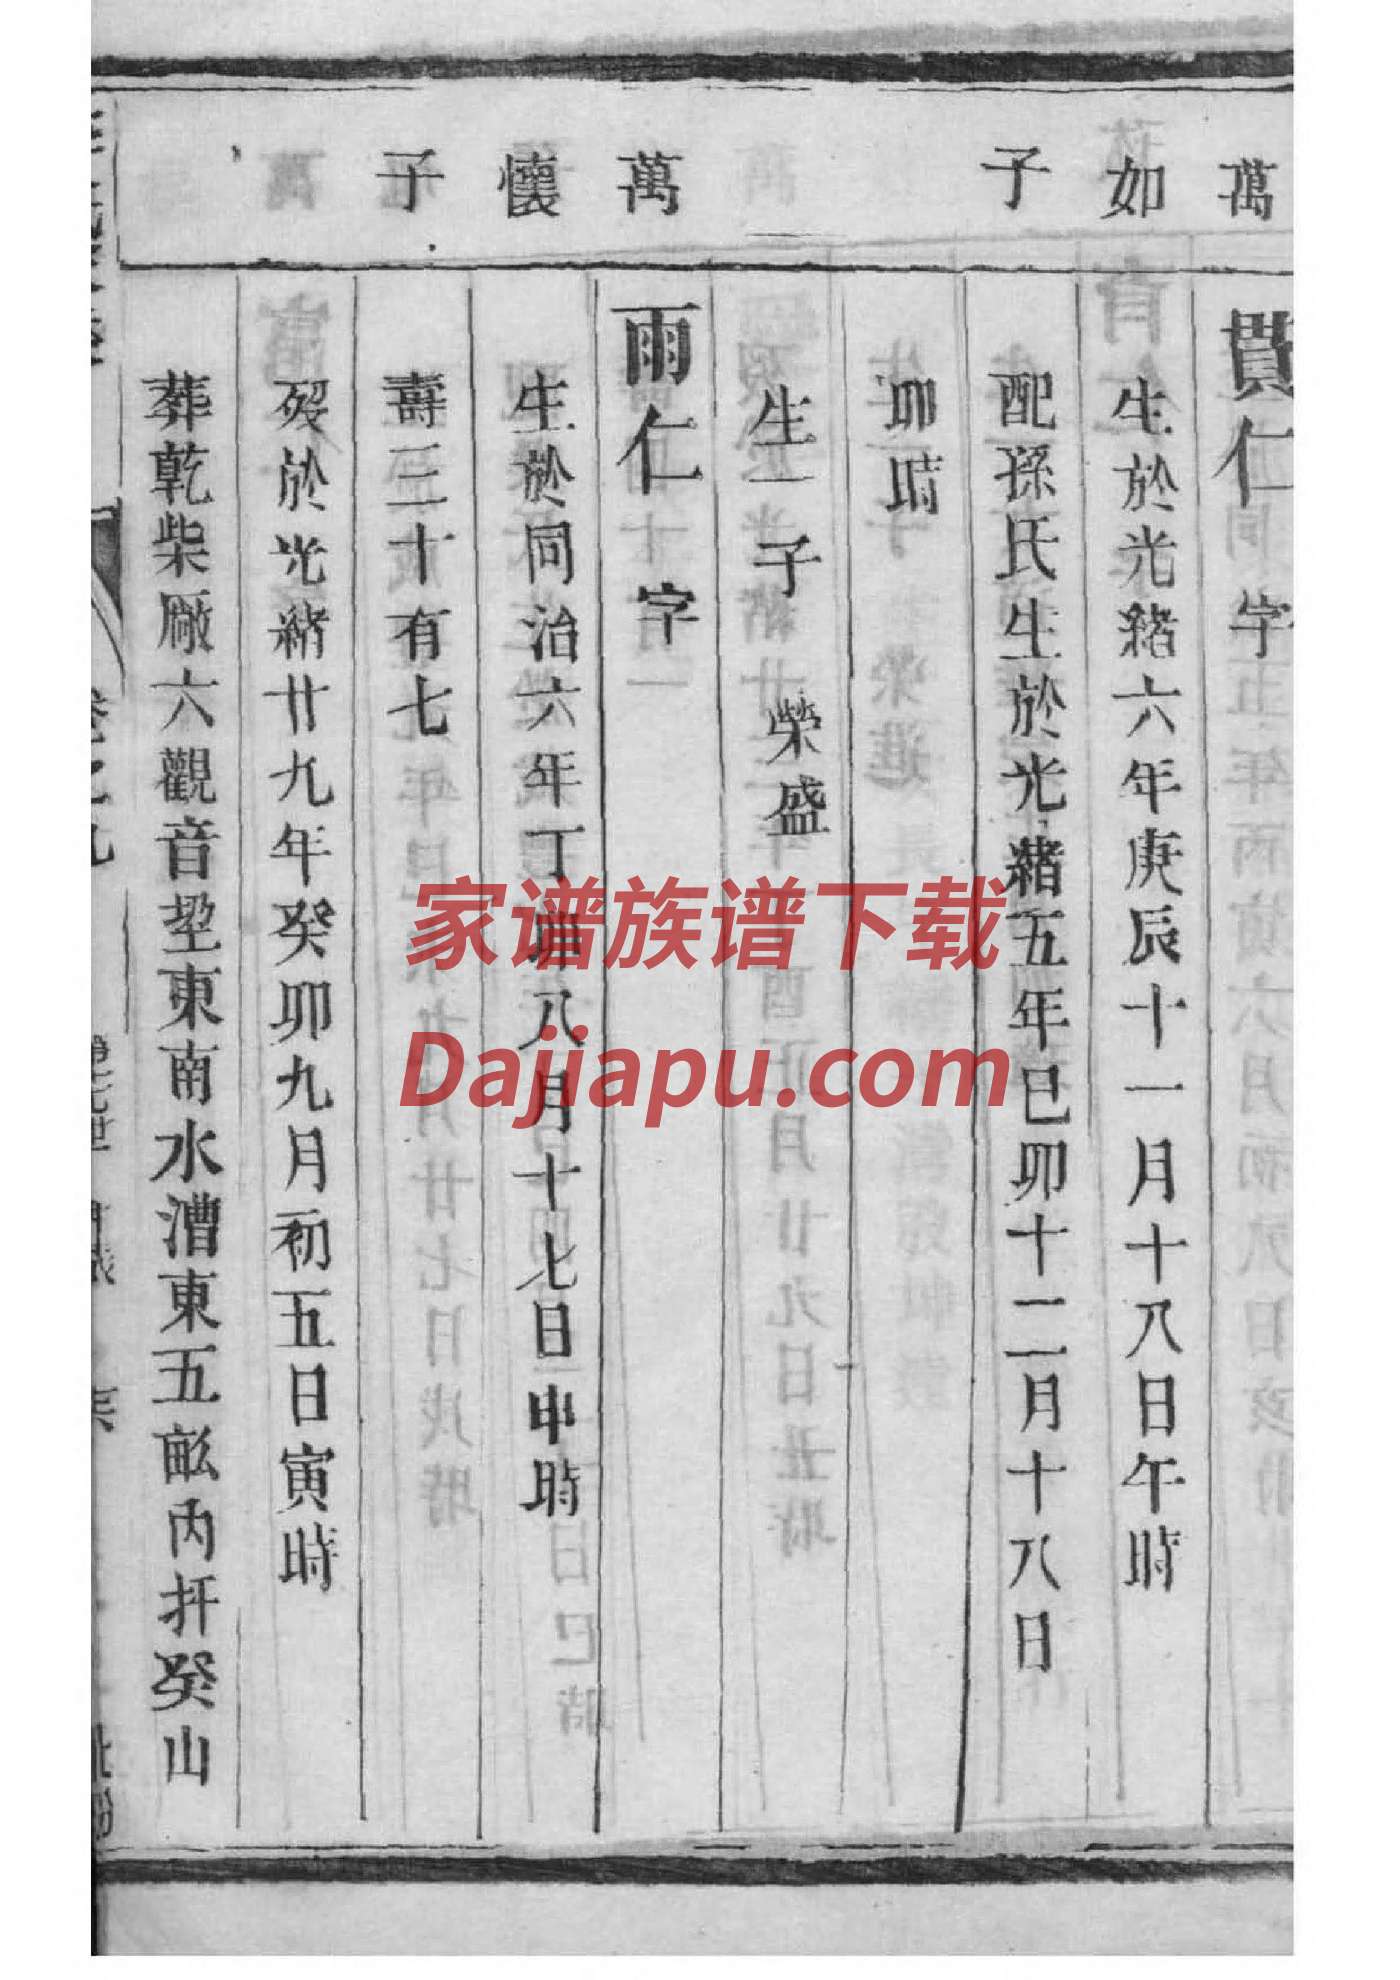 萬如子
貫仁 字
生於光緒六年庚辰十一月十八日午時
配孫氏生於光緒五年已卯十二月十八日
卯時
生一子 榮盛
萬懷子
雨仁 字
生於同治六年丁卯八月十七日申時
壽三十有七
歿於光緒廿九年癸卯九月初五日寅時
葬乾柴厰六觀音坙東南水漕東五畝內扞癸山
卷之九
家谱族谱下载
Dajiapu.com